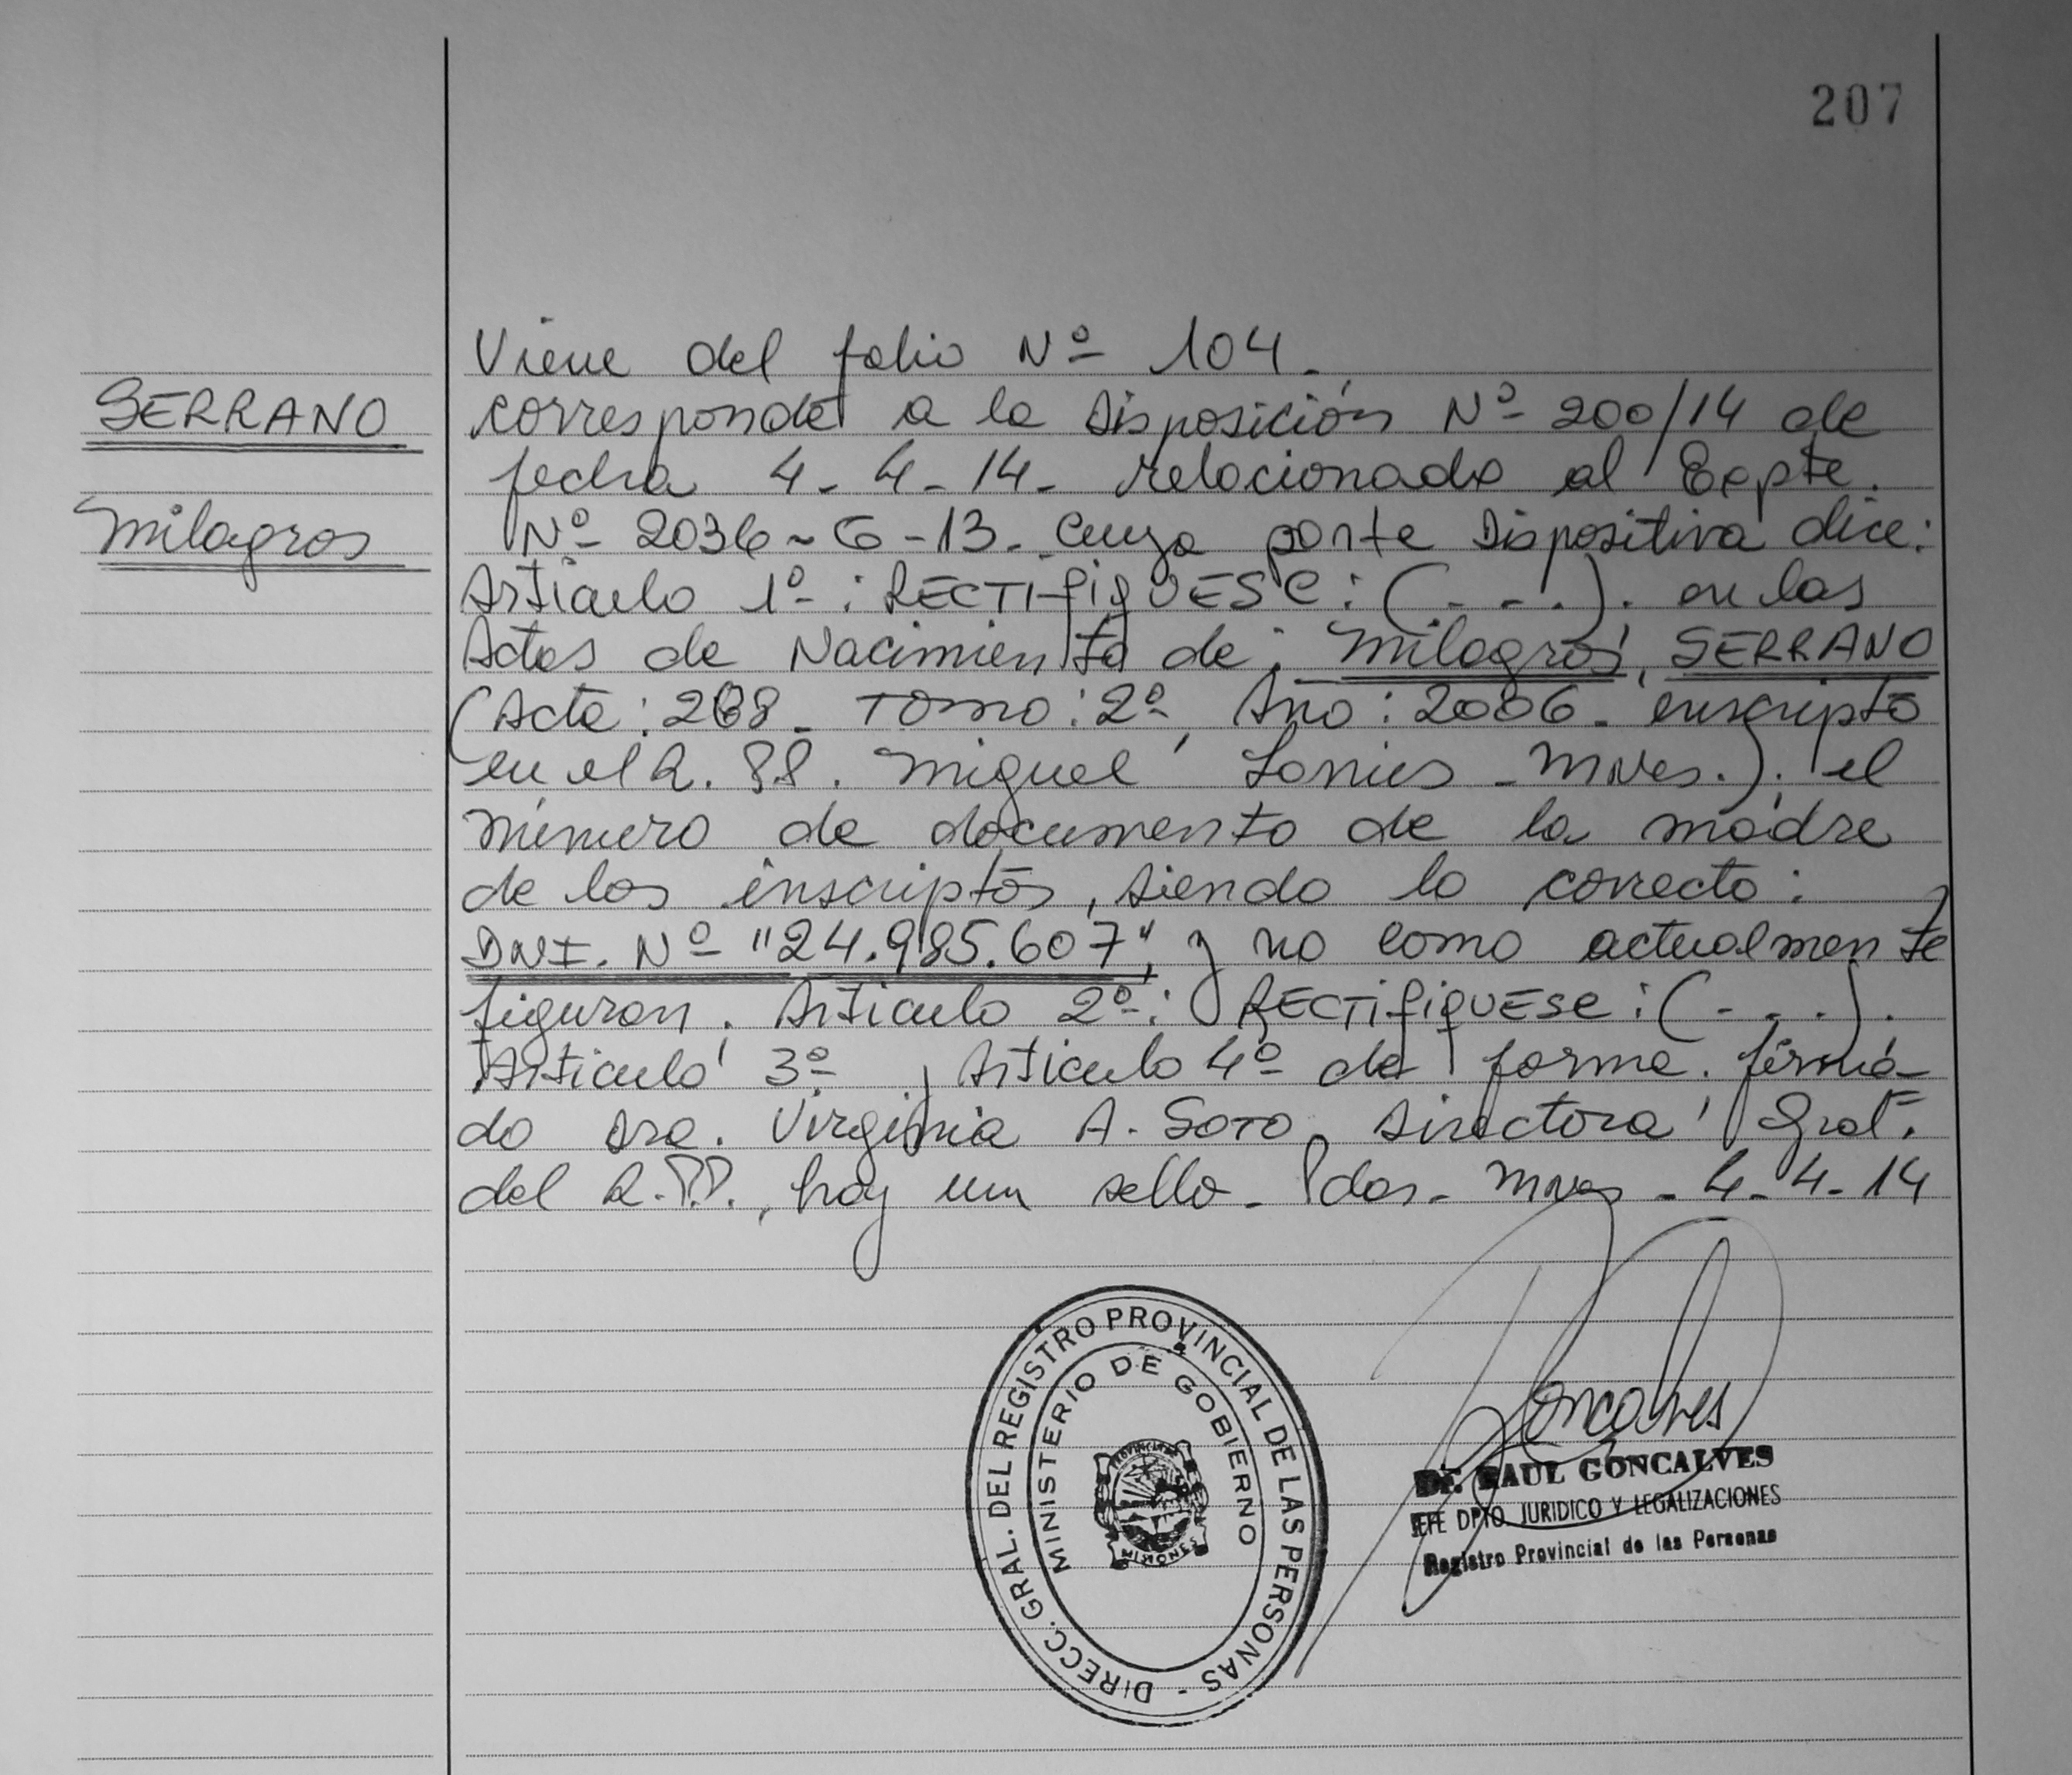 207
SERRANO
Milagros
Viene del folio Nº 104.
corresponde a la Disposición Nº 200/14 de
fecha 4-4-14- relacionado al Eepte.
Nº 2036-G-13. Cuya parte Dispositiva dice:
Artículo 1º: RECTIFIQUESE: (...). en las
Actas de Nacimiento de: Milagros, SERRANO
(Acta: 268- Tomo: 2º, Año: 2006- inscripto
en el R. PP. Miguel Mnes.). el
número de documento de la madre
de los inscriptos, siendo lo correcto:
DNI. Nº "24.985.607", y no como actualmente
figuran. Artículo 2º: RECTIFIQUESE: (...).
Artículo 3º y Artículo 4º de forma. firma-
do Dra. Virginia A. SOTO, Directora Gral.
del R.PP., hay un sello- Pdas- Mnes- 4-4-14
DIRECC. GRAL. DEL REGISTRO PROVINCIAL DE LAS PERSONAS -
MINISTERIO DE GOBIERNO
PROVINCIA DE
MISIONES
Goncalves
Dr. RAUL GONCALVES
JEFE DPTO. JURIDICO Y LEGALIZACIONES
Registro Provincial de las Personas